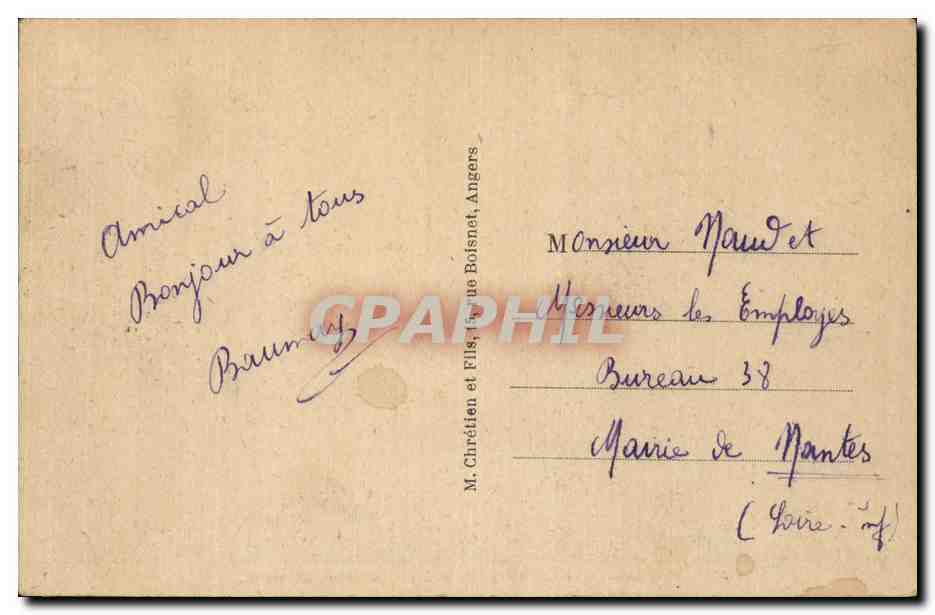 Amical
Bonjour à tous
M. Chrétien et Fils, 15, rue Boisnet, Angers
CPAPHIL
Monsieur Naud et
Messieurs les Employes
Bureau 38
Mairie de Nantes
(Loire-inf)